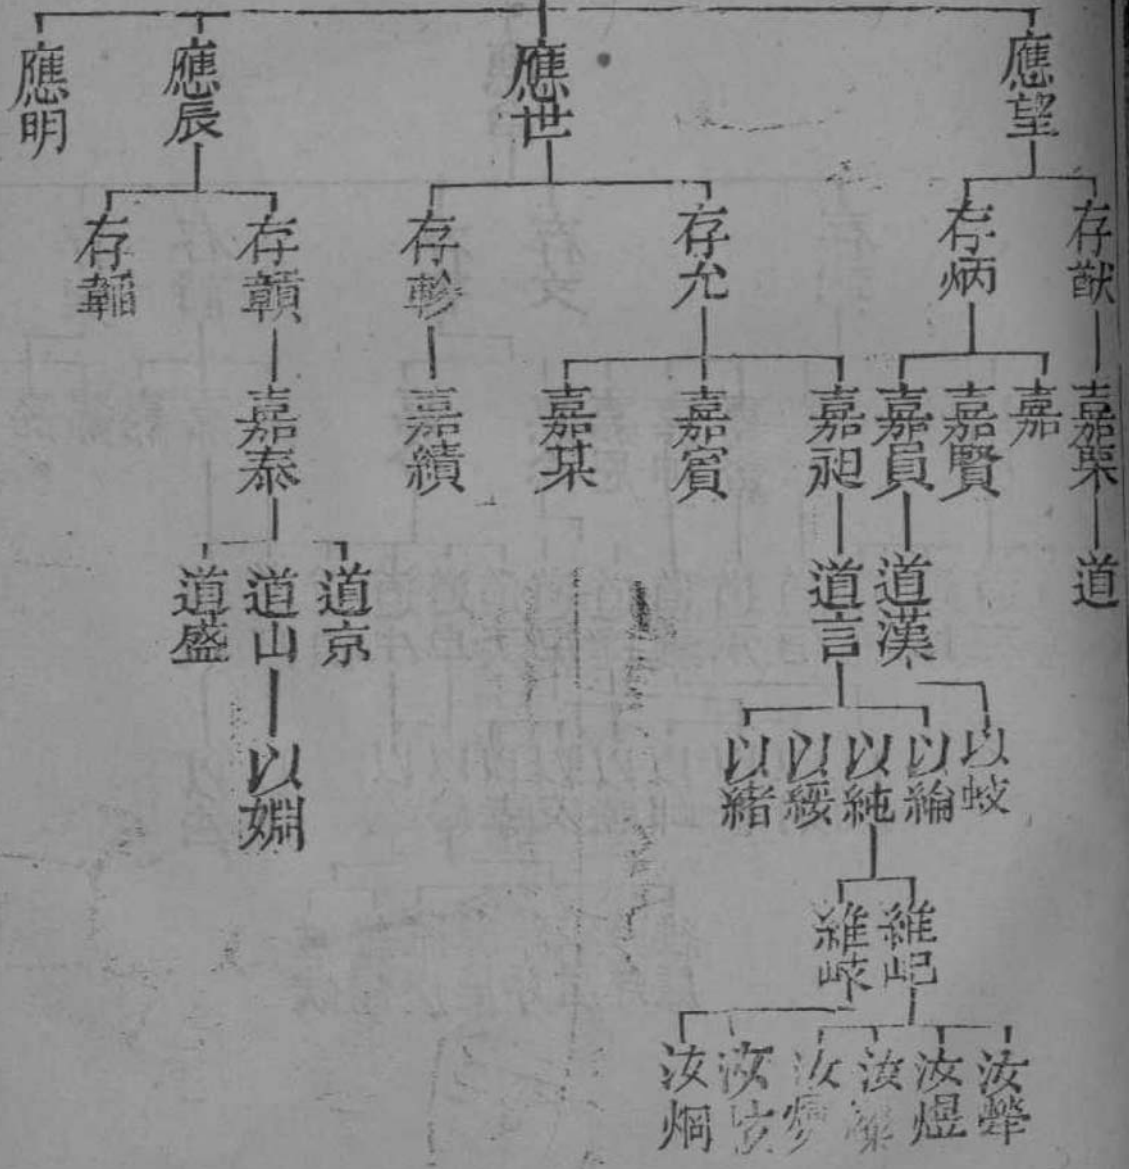 應望
應世
應辰
應明
存猷
存炳
存允
存軫
存韥
存韜
嘉槼
嘉
嘉賢
嘉員
嘉昶
嘉賓
嘉某
嘉績
嘉泰
道
道漢
道言
道京
道山
道盛
以蛟
以綸
以純
以綏
以緒
以嫻
維屺
維岐
汝犖
汝煜
汝
汝
汝
汝炯